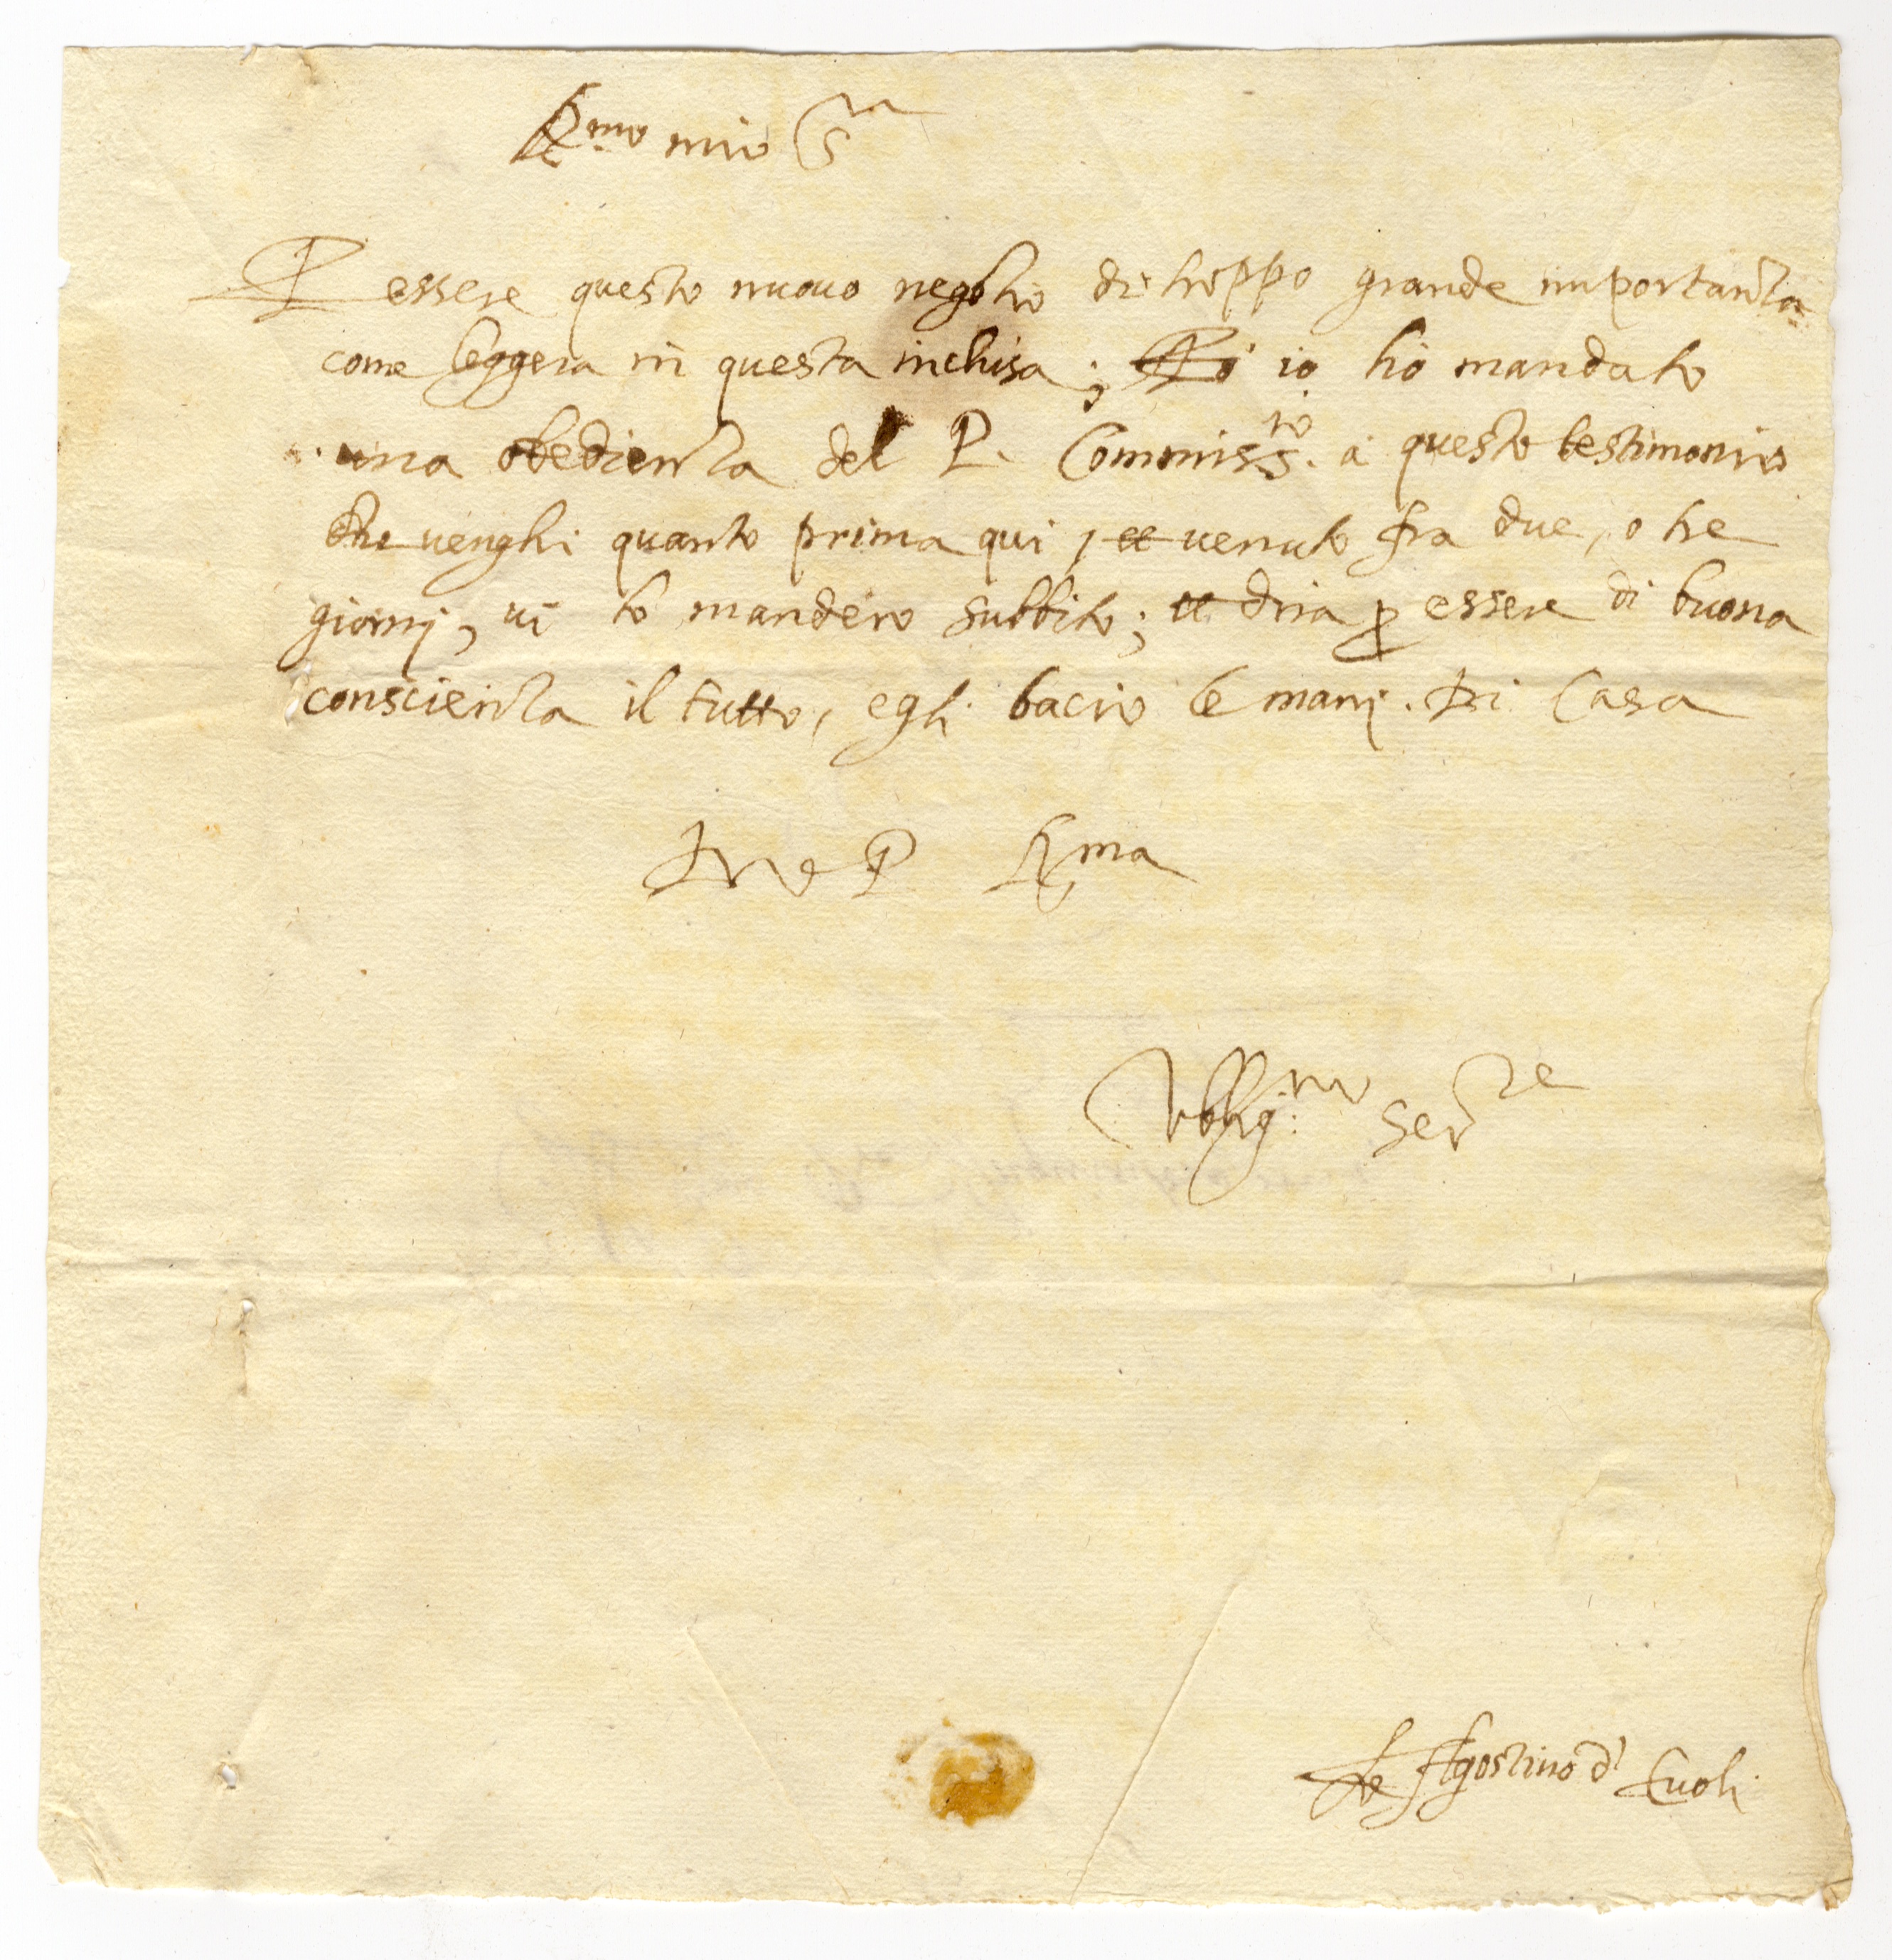 R.mo mio S.r
P essere questo nuouo negotio di troppo grande importanza
come leggera in questa inchiusa; io ho mandato
una obedienza del P. Commiss.rio à questo testimonio
che uenghi quanto prima qui, et uenuto fra due, o tre
giorni, ui lo mandero subbito; et dira p essere di buona
conscienza il tutto, e gli bacio le mani. Di Casa
D V P R.ma
Vbblig.mo Ser.re
Fr Agostino d' Euoli